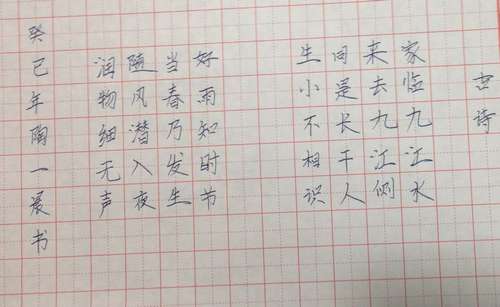 古诗
家临九江水
来去九江侧
同是长干人
生小不相识
好雨知时节
当春乃发生
随风潜入夜
润物细无声
癸巳年陶一宸书